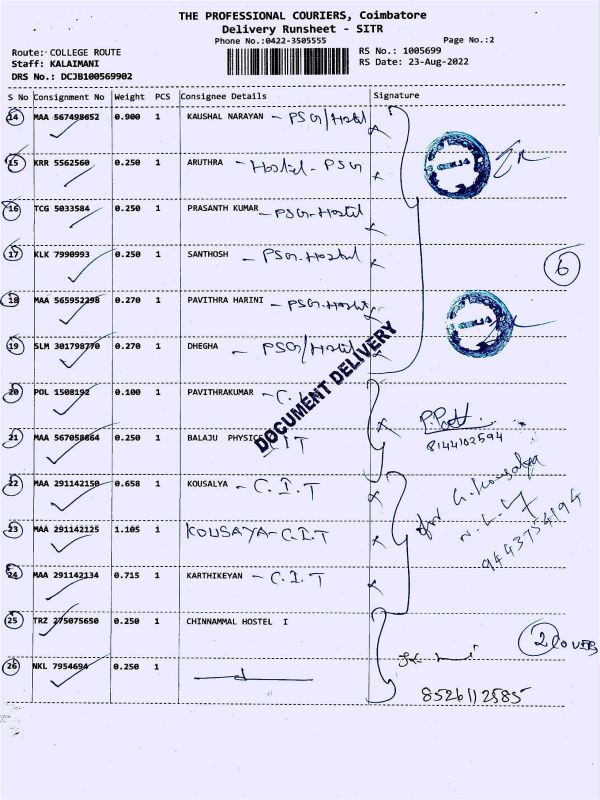 THE PROFESSIONAL COURIERS, Coimbatore
Delivery Runsheet - SITR
Phone No.:0422-3505555 Page No.:2
Route: COLLEGE ROUTE RS No.: 1005699
Staff: KALAIMANI RS Date: 23-Aug-2022
DRS No.: DCJB100569902
S No Consignment No Weight PCS Consignee Details Signature
14 MAA 567498652 0.900 1 KAUSHAL NARAYAN - PSG/Hostel
15 KRR 5562560 0.250 1 ARUTHRA - Hostel - PSG
16 TCG 5033584 0.250 1 PRASANTH KUMAR - PSG-Hostel
17 KLK 7990993 0.250 1 SANTHOSH - PSG.Hostel
6
18 MAA 565952298 0.270 1 PAVITHRA HARINI - PSG.Hostel
19 SLM 301798770 0.270 1 DHEGHA - PSG/Hostel
DOCUMENT DELIVERY
20 POL 1508192 0.100 1 PAVITHRAKUMAR - C.
8144102594
21 MAA 567058864 0.250 1 BALAJU PHYSICS CIT
22 MAA 291142150 0.658 1 KOUSALYA - C.I.T
for G. Kousalya
23 MAA 291142125 1.105 1 KOUSAYA - C.I.T
9443754194
24 MAA 291142134 0.715 1 KARTHIKEYAN - C.I.T
25 TRZ 275075650 0.250 1 CHINNAMMAL HOSTEL I
2 covers
26 NKL 7954694 0.250 1
8526112585